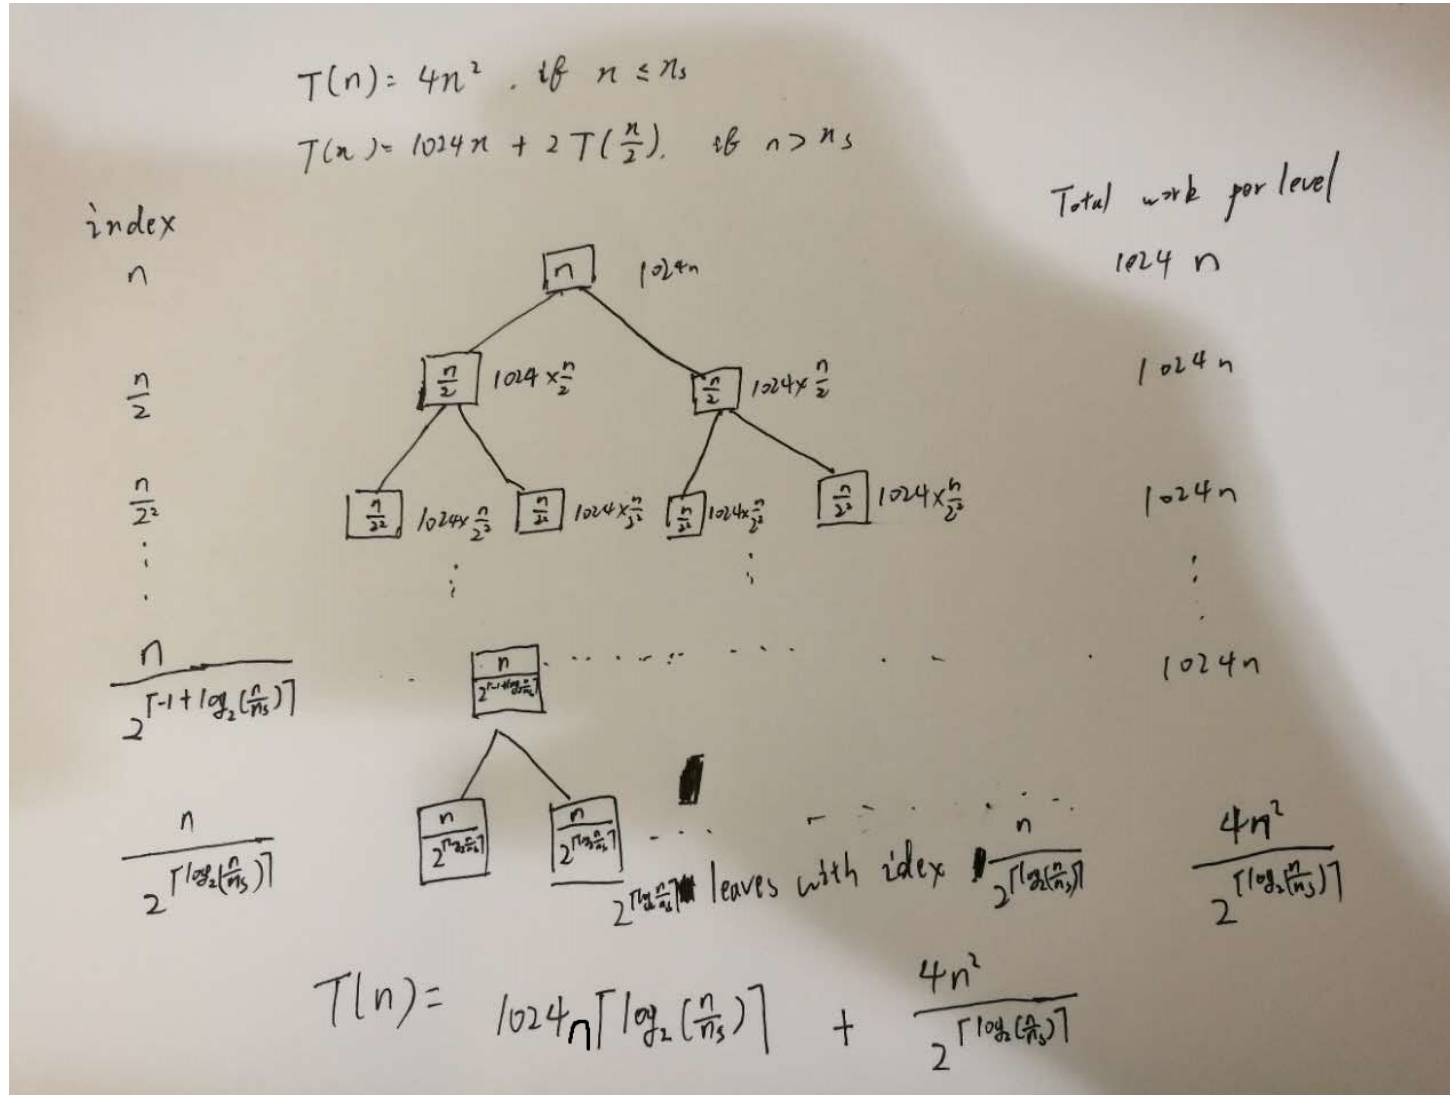 T(n) = 4n². if n ≤ ns
T(n) = 1024n + 2T(n/2). if n > ns
Total work per level
index
n n 1024n 1024 n
n/2 n/2 1024×n/2 n/2 1024×n/2 1024n
n/2² n/2² 1024×n/2² n/2² 1024×n/2² n/2² 1024×n/2² n/2² 1024×n/2² 1024n
n/2^⌈-1+log₂(n/ns)⌉ n/2^⌈-1+log₂(n/ns)⌉ 1024n
n/2^⌈log₂(n/ns)⌉ n/2^⌈log₂n/ns⌉ n/2^⌈log₂n/ns⌉ 2^⌈log₂n/ns⌉ leaves with idex n/2^⌈log₂(n/ns)⌉ 4n²/2^⌈log₂(n/ns)⌉
T(n) = 1024n⌈log₂(n/ns)⌉ + 4n²/2^⌈log₂(n/ns)⌉